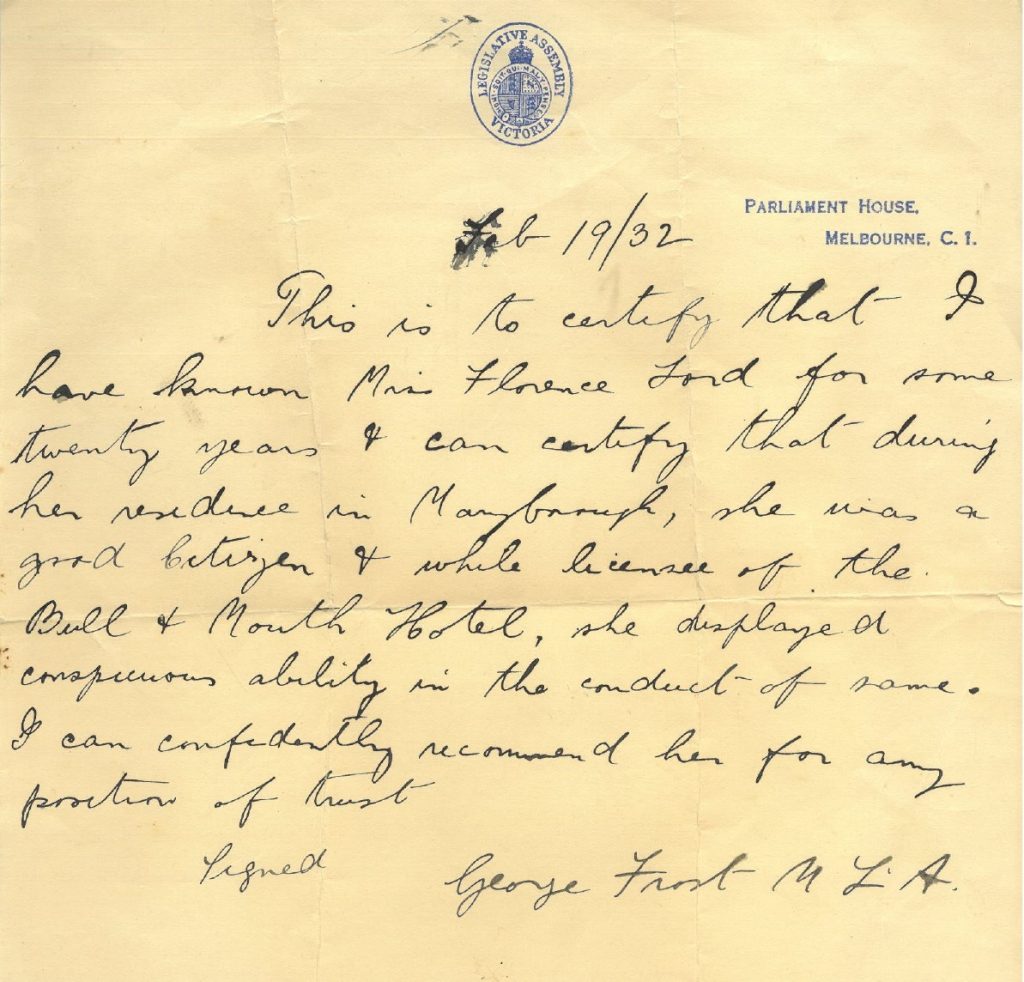 LEGISLATIVE ASSEMBLY
VICTORIA
PARLIAMENT HOUSE,
MELBOURNE, C. 1.
Feb 19/32
This is to certify that I
have known Miss Florence Lord for some
twenty years & can certify that during
her residence in Maryborough, she was a
good Citizen & while licensee of the
Bull & Mouth Hotel, she displayed
conspicuous ability in the conduct of same.
I can confidently recommend her for any
position of trust
Signed
George Frost M L A.